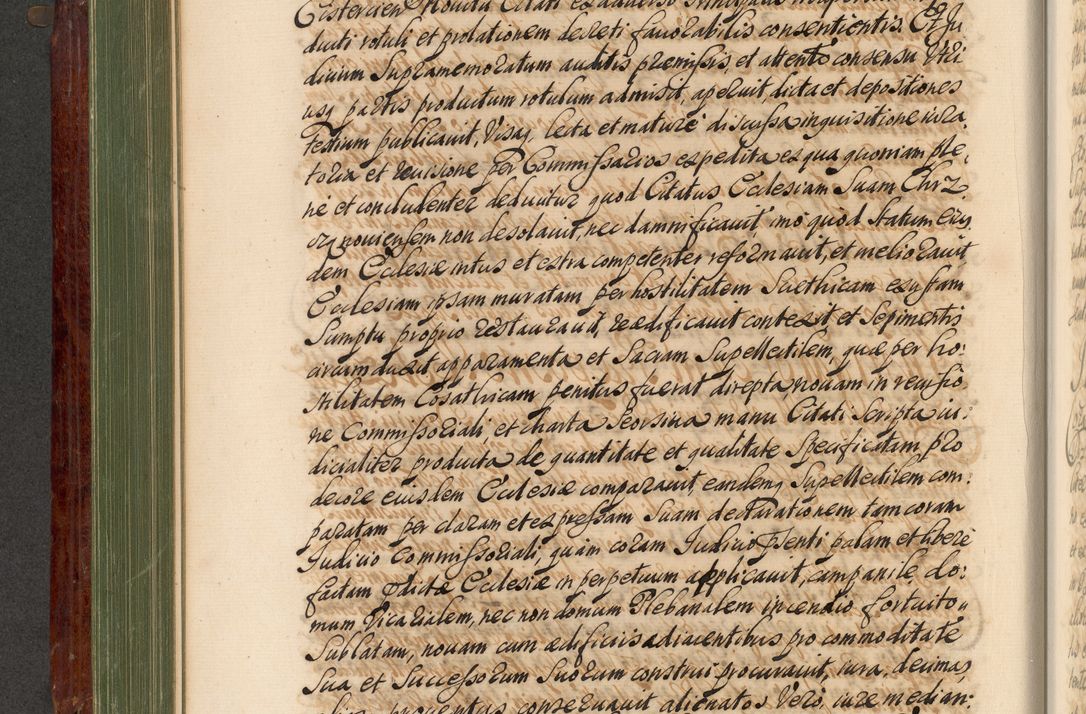 ducti rotuli et prolationem decreti favorabilis consentientis. Et Ju
dicium Supramemoratum auditis præmissis, et attento consensu Utri
usq partis productum rotulum admisit, aperuit, dicta et depositiones
Testium publicavit, Visaq lecta et mature discussa inquisitione jura
toria et revisione per Commissarios expedita ex qua quoniam ple
ne et concludenter deducitur quod Citatus Ecclesiam Suam Chrz
oviensem non desolavit, nec damnificavit imo quod Statum eius
dem Ecclesiæ intus et extra competenter reformavit, et melioravit
Ecclesiam ipsam muratam per hostilitatem Suethicam exustam
Sumptu proprio restauravit, reædificavit contexit et Sepimentis
circumduxit apparamenta et Sacram Supellectilem, quæ per ho:
stilitatem Cosathicam penitus fuerat direpta, novam in revisio
ne Commissoriali, et charta Seorsiva manu Citati Scripta iu:
dicialiter producta de quantitate et qualitate Specificatam, pro
decore eiusdem Ecclesiæ comparavit, eandemq Supellectilem com:
paratam per claram et expressam Suam declarationem tam coram
Judicio Commissoriali, quam coram Judicio psenti palam et libere
factam pdictæ Ecclesiæ in perpetuum applicavit, campanile do:
mum Vicarialem, nec non domum Plebanalem incendio fortuito
Sublatam, novam cum ædificiis adiacentibus pro commoditate
Sua, et Successorum Suorum construi procuravit, iura, decimas
proventus conservavit alienatos Vero, iure median: